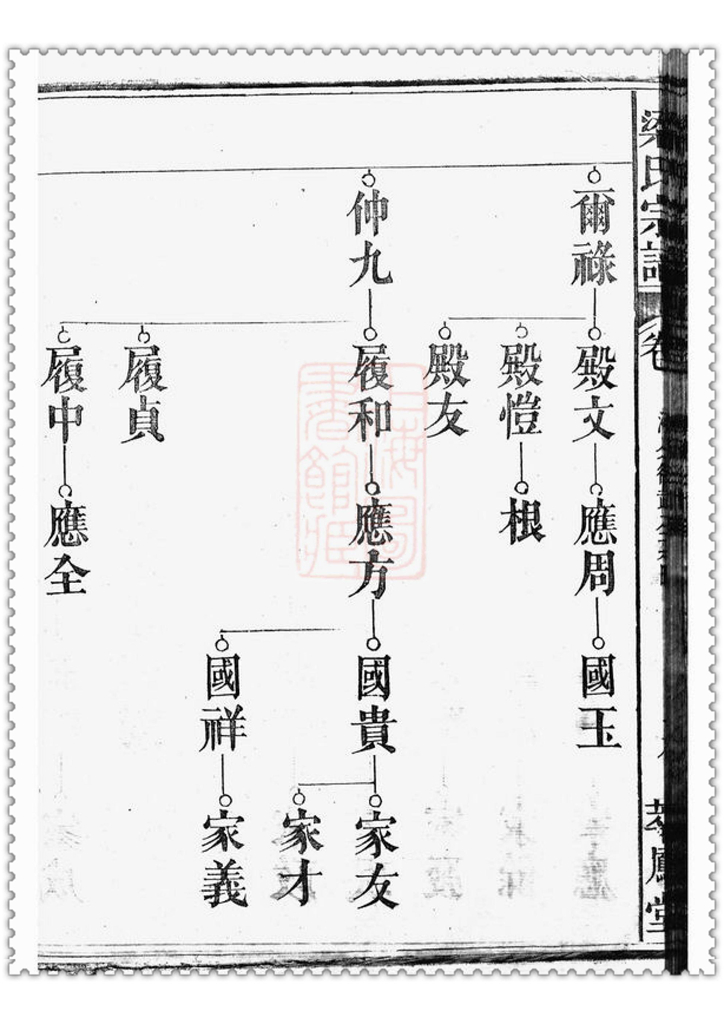 梁氏宗譜
卷
爾祿
殿文
應周
國玉
殿愷
根
殿友
仲九
履和
應方
國貴
家友
家才
國祥
家義
履貞
履中
應全
鳳堂
上海圖書館藏